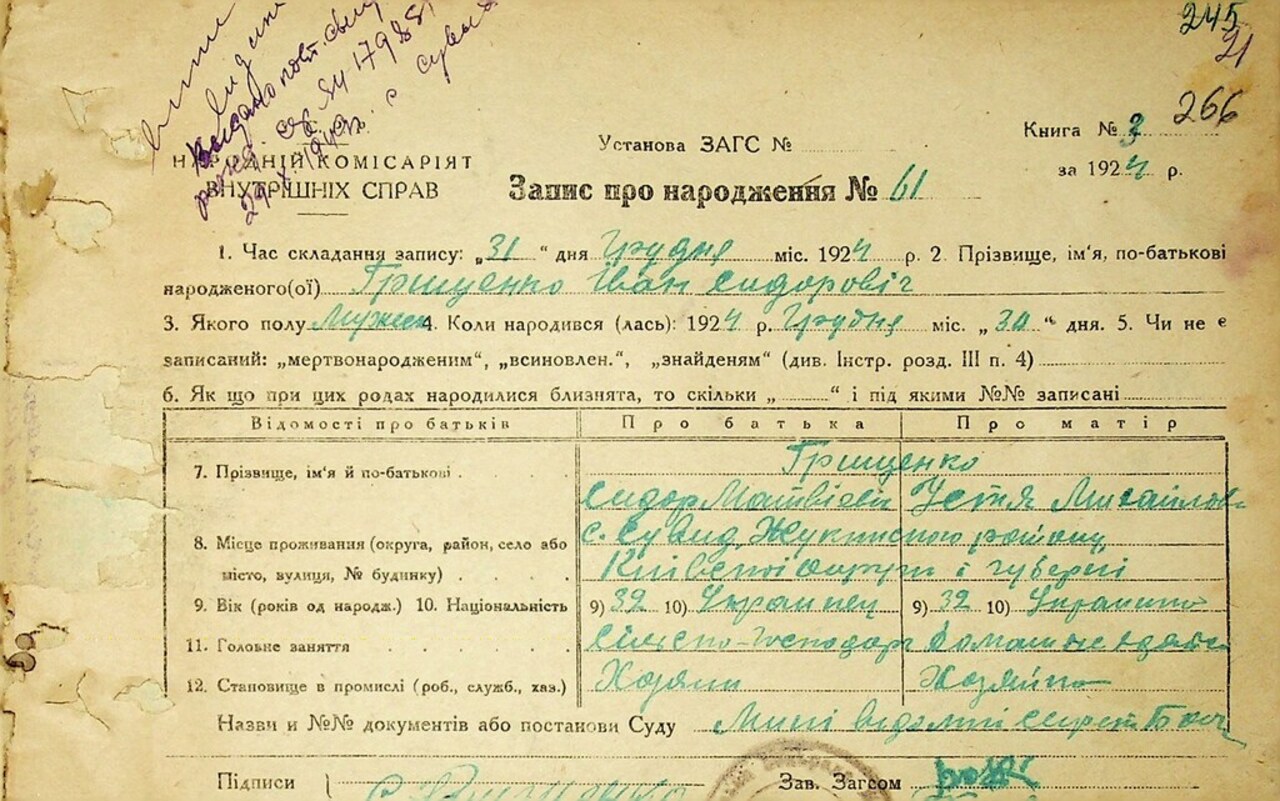 245
21
266
Выдано повт. свид.
Книга № 3
Установа ЗАГС №
за 1924 р.
НАРОДНІЙ КОМІСАРІЯТ
ВНУТРІШНІХ СПРАВ
Запис про народження № 61
1. Час складання запису: „31“ дня Грудня міс. 1924 р. 2. Прізвище, ім'я, по-батькові
народженого(ої) Грищенко Іван Сидоровіч
3. Якого полу Мужеск 4. Коли народився (лась): 1924 р. Грудня міс. „30“ дня. 5. Чи не є
записаний: „мертвонародженим“, „всиновлен.“, „знайденям“ (див. Інстр. розд. III п. 4)
6. Як що при цих родах народилися близнята, то скільки „ “ і під якими №№ записані
Відомості про батьків Про батька Про матір
7. Прізвище, ім'я й по-батькові Грищенко
Сидор Матвієв Устя Михайлов
8. Місце проживання (округа, район, село або с. Сувид, Жукинського району,
місто, вулиця, № будинку) Київської округи і губерні
9. Вік (років од народж.) 10. Національність 9) 32 10) Украинец 9) 32 10) Украинка
11. Головне заняття Сільсько-Господар Домашне
12. Становище в промислі (роб., служб., хаз.) Хозяин Хозяйка
Назви и №№ документів або постанови Суду Мині
Підписи Зав. Загсом